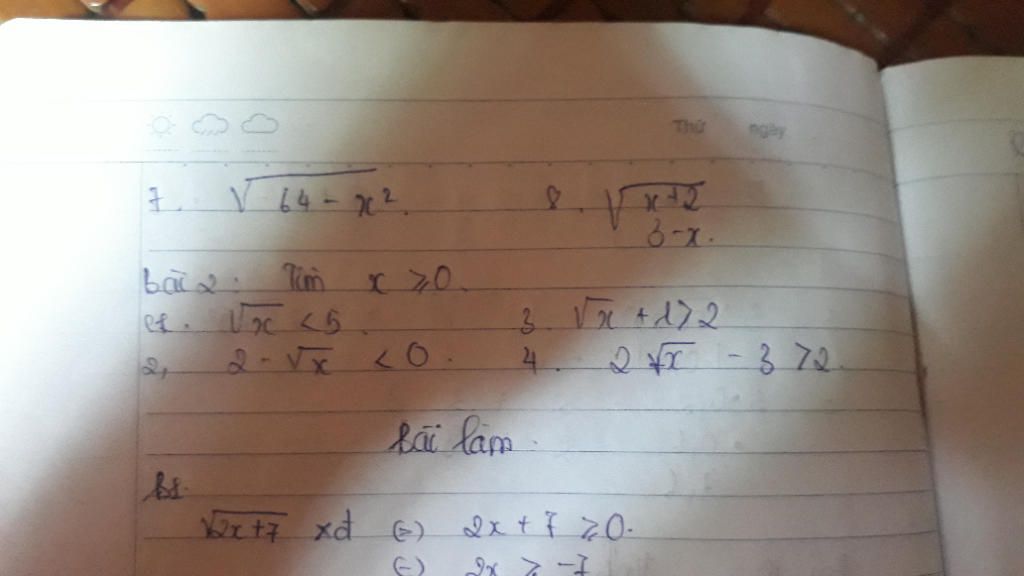 Thứ ngày
7. √64 - x². 8. √x+2
3-x.
Bài 2: Tìm x ≥ 0.
1. √x < 5. 3. √x + 1 > 2
2, 2 - √x < 0. 4. 2√x - 3 > 2.
Bài làm.
B1.
√2x+7 xđ (=) 2x + 7 ≥ 0.
(=) 2x ≥ -7